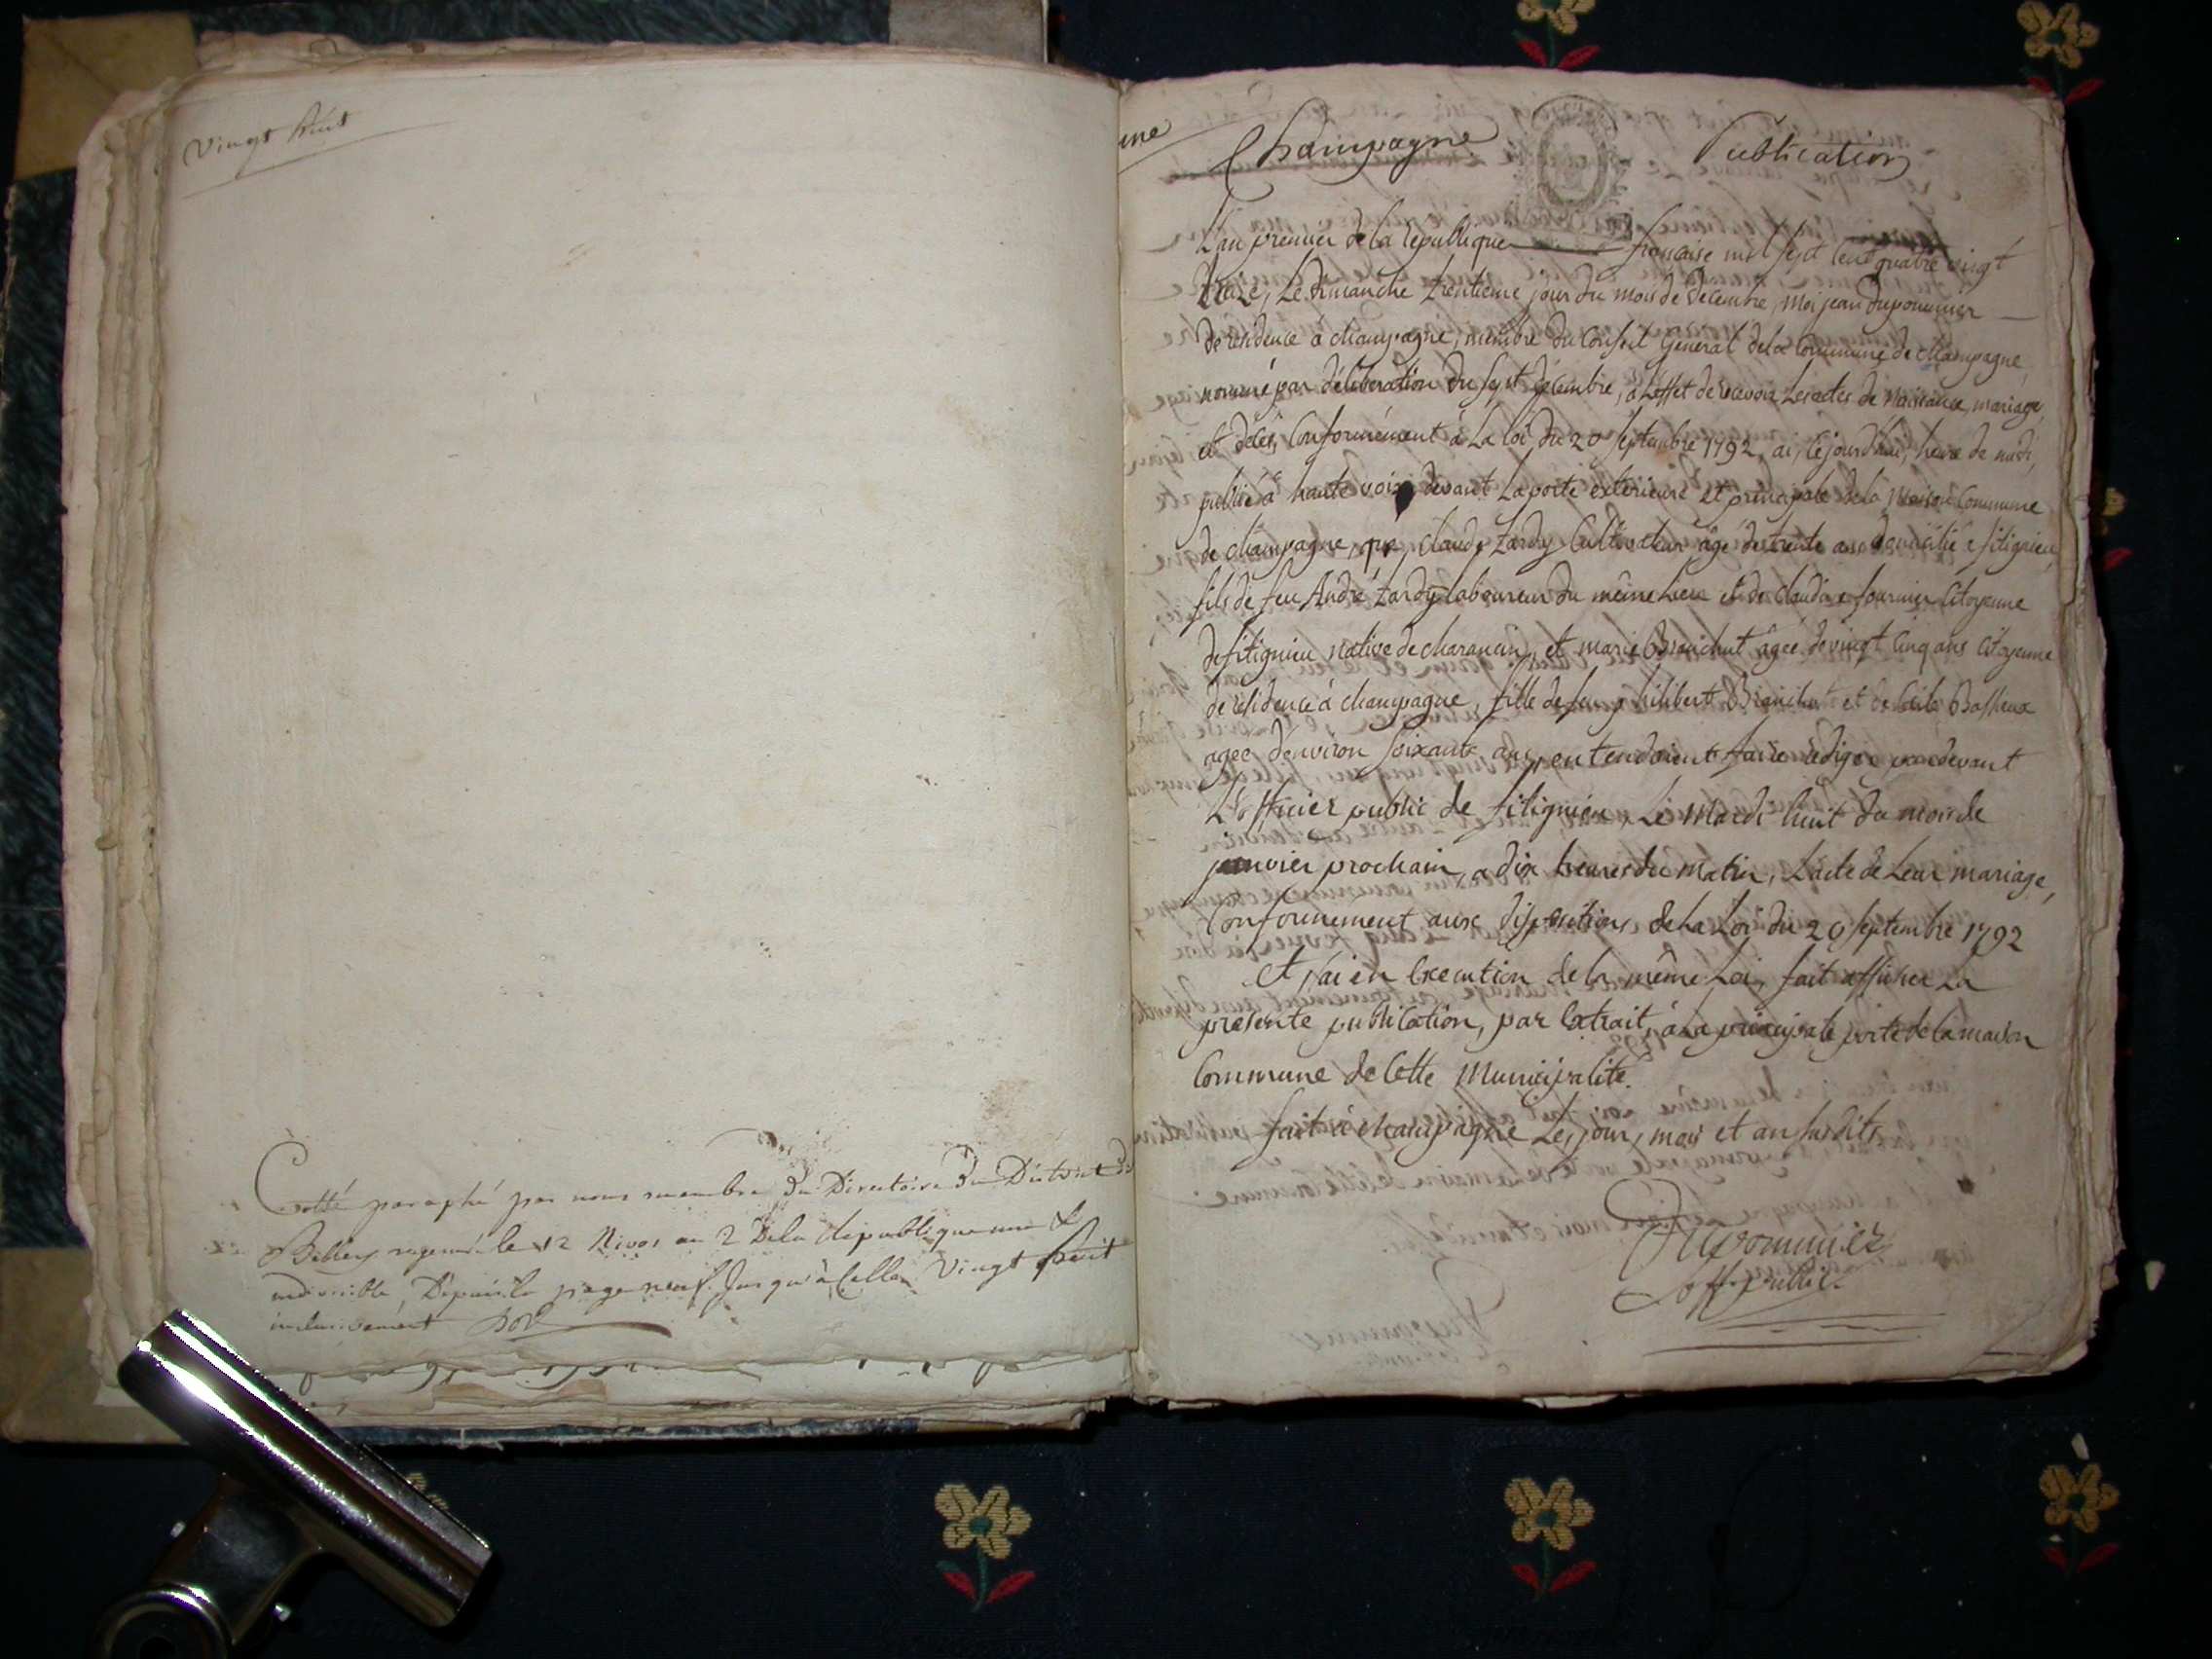 Vingt huit
Cotté paraphé par nous membre du Directoire du District de
Belley regeneré le 12 Nivos an 2 De la Republique une &
indivisible, Depuis la page neuf jusqu'à celle Vingt huit
inclusivement
une
Champagne Publication
L'an premier de la republique francaise mil sept cent quatre vingt
treize, Le dimanche trentieme jour du mois de decembre, Moi jean Dupommier
de residence à champagne, membre du Conseil General de la Commune de champagne,
nommé par déliberation du sept decembre, à L'effet de recevoir Les actes de Naissance, mariage,
et décès, Conformément à La loi du 20 septembre 1792, ai, cejourdhui, heure de midi,
publié à haute voix devant La porte exterieure et principale de la Maison Commune
de champagne, que, Claude tardy Cultivateur âgé de trente ans domicilié a fitignieu,
fils de feu André tardy laboureur du même Lieu et de Claudine fournier Citoyenne
de fitignieu native de charancin, et marie Brauchut âgee de vingt Cinq ans Citoyenne
de résidence à champagne, fille de feu philibert Brauchut et de Bassieux
agee d'environ soixante ans, entendoient faire rediger pardevant
L'officier public de fitignieu, Le Mardi huit du mois de
janvier prochain, a dix heures du matin, L'acte de Leur mariage,
Conformement aux dispositions de La Loi du 20 septembre 1792
Et j'ai en Execution de la même Loi, fait afficher La
presente publication, par Extrait, à La principale porte de la maison
Commune de Cette Municipalité.
fait à champagne Les jour, mois et an susdits
Dupommier
off. public.